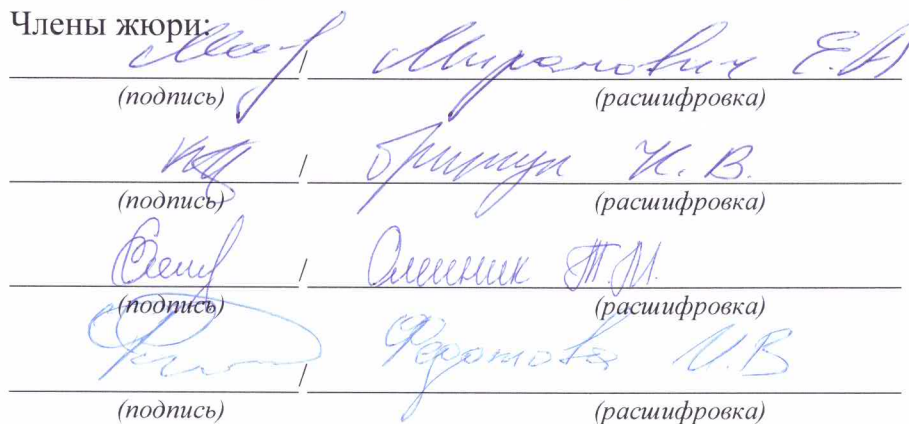 Члены жюри:
/ Миранович Е.А
(подпись) (расшифровка)
/ Грищук К. В.
(подпись) (расшифровка)
/ Олейник Т.М.
(подпись) (расшифровка)
/ Федотова И.В
(подпись) (расшифровка)